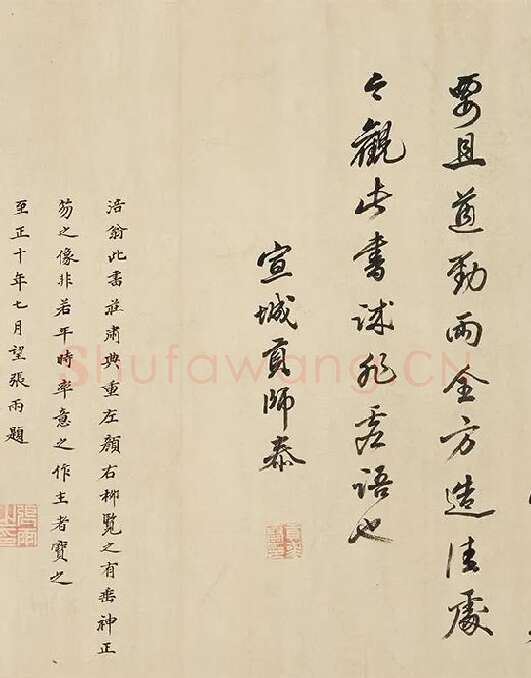 要且遒勁兩全方造佳處
今觀此書誠非虛語也
宣城貢師泰
涪翁此書莊肅典重左顏右柳覽之有垂紳正
笏之像非若平時率意之作主者寶之
至正十年七月望張雨題
Shufawang.CN